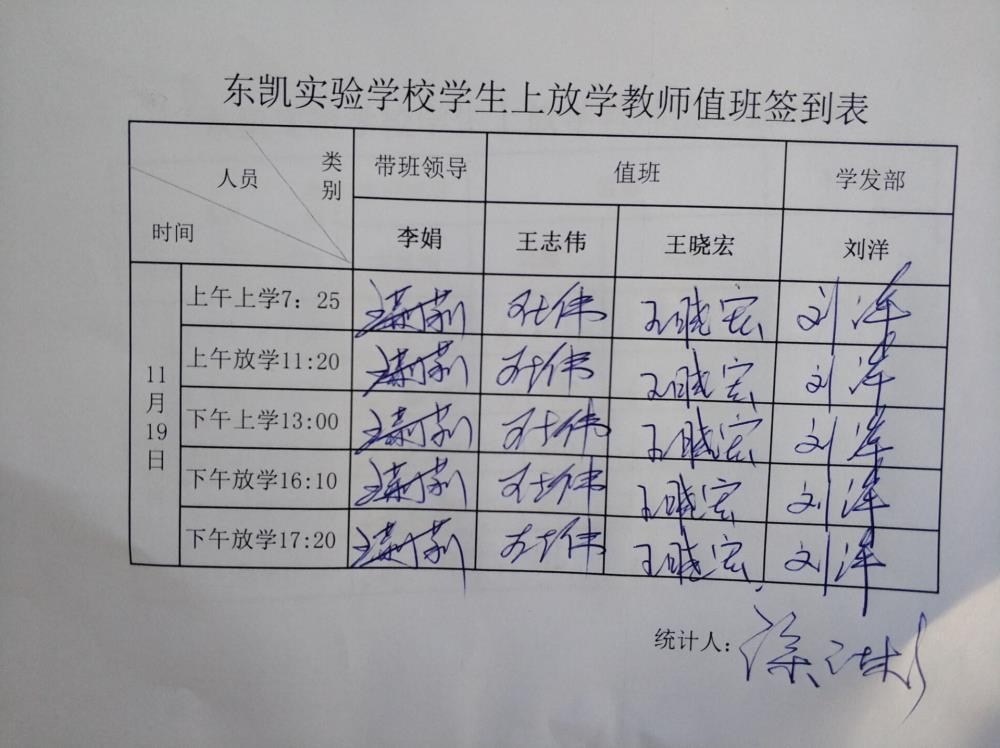 东凯实验学校学生上放学教师值班签到表
类别 人员 时间 带班领导 值班 学发部
李娟 王志伟 王晓宏 刘洋
11月19日
上午上学7：25 王志伟 王晓宏 刘洋
上午放学11:20 王志伟 王晓宏 刘洋
下午上学13:00 王志伟 王晓宏 刘洋
下午放学16:10 王志伟 王晓宏 刘洋
下午放学17:20 王志伟 王晓宏 刘洋
统计人：